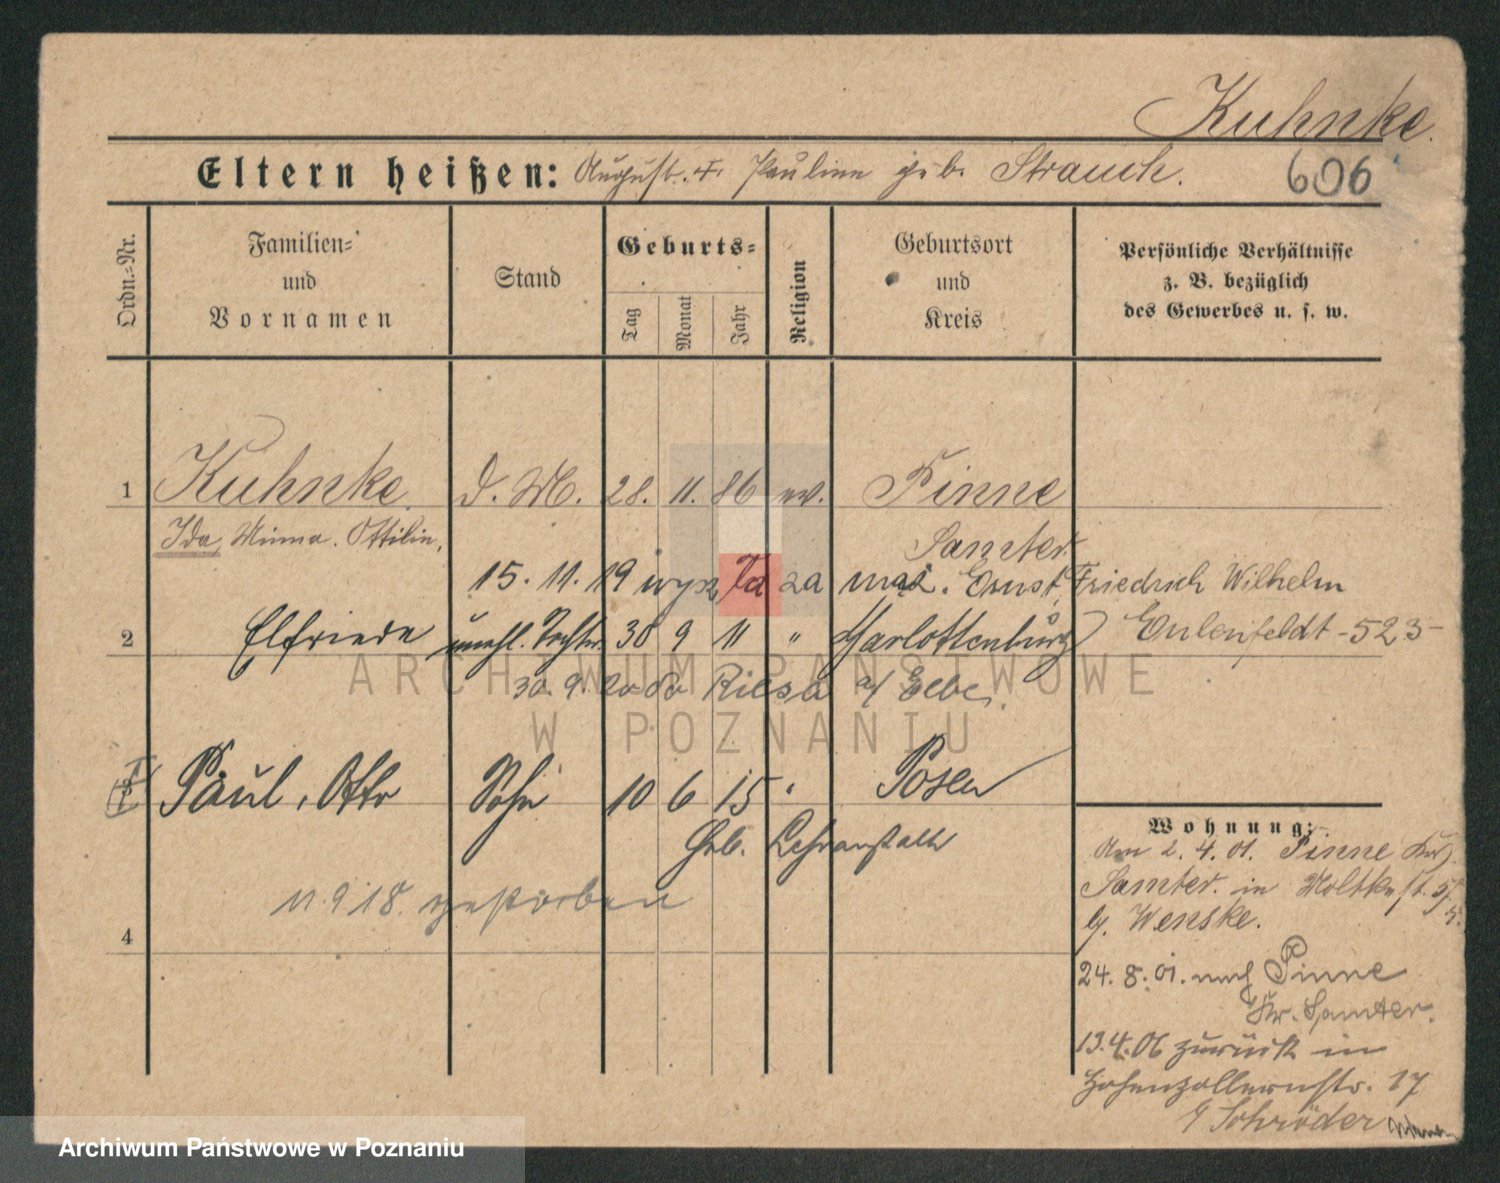 Kuhnke.
Eltern heißen: August. u. Pauline geb. Strauch. 606
Ordn.-Nr.
Familien-
und
Vornamen
Stand
Geburts-
Tag
Monat
Jahr
Religion
Geburtsort
und
Kreis
Persönliche Verhältnisse
z. B. bezüglich
des Gewerbes u. s. w.
1 Kuhnke. d. M. 28. 11. 86 ev. Pinne
Ida, Minna. Ottilie. Samter.
15. 11. 19 Ida Ernst, Friedrich Wilhelm
2 Elfriede unehl. Tochter 30 9 11 " Charlottenburg Eulenfeldt -523-
ARCHIWUM PAŃSTWOWE
30. 9. 20 Riesa a/ Elbe.
W POZNANIU
Paul, Otto Sohn 10 6 15 " Posen
Geb. Lehranstalt
11.9.18. gestorben
4
Wohnung:
Am 2. 4. 01. Pinne Kr.
Samter. in Moltkestr.
b. Wenske.
24. 8. 01. nach Pinne
Kr. Samter.
13.4.06 zurück in
Hohenzollernstr. 17
b Schröder
Archiwum Państwowe w Poznaniu